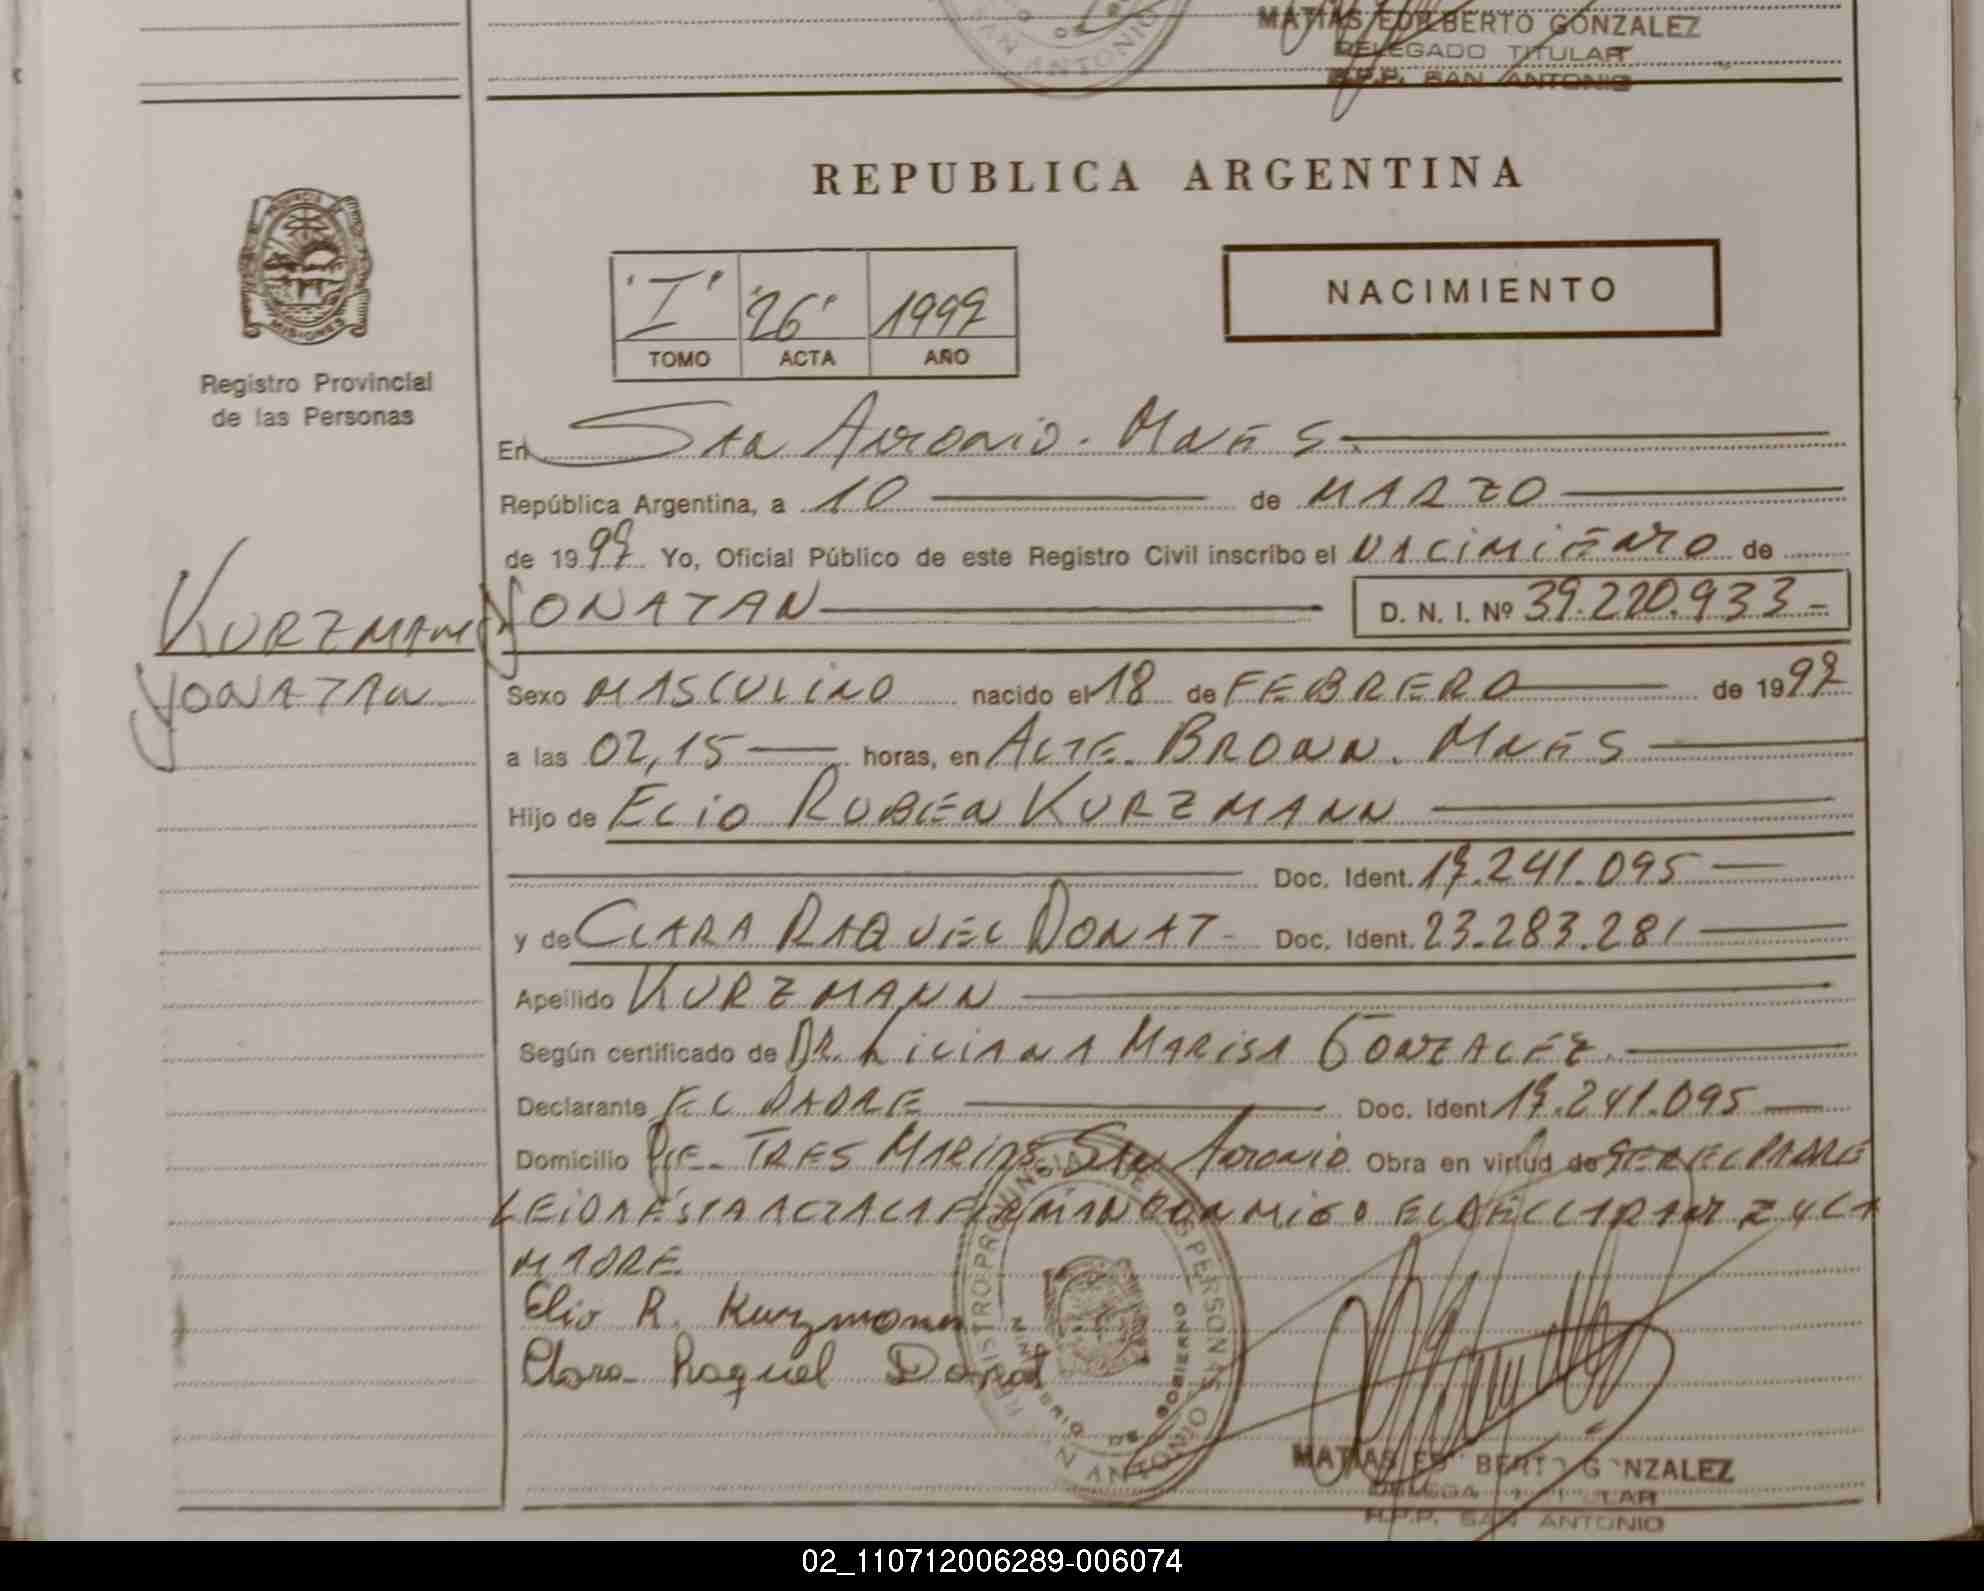 MATIAS EDILBERTO GONZALEZ
DELEGADO TITULAR
R.P.P. SAN ANTONIO
SAN ANTONIO
REPUBLICA ARGENTINA
PROVINCIA DE
MISIONES
Registro Provincial
de las Personas
"I" "26" 1997
TOMO ACTA AÑO
NACIMIENTO
En San Antonio. Mnes.
República Argentina, a 10 de MARZO
de 1997 Yo, Oficial Público de este Registro Civil inscribo el NACIMIENTO de
JONATAN D. N. I. Nº 39.220.933-
KURZMANN
JONATAN
Sexo MASCULINO nacido el 18 de FEBRERO de 1997
a las 02,15 horas, en ALTE. BROWN. MNES
Hijo de ELIO RUBEN KURZMANN
Doc. Ident. 17.241.095
y de CLARA RAQUEL DONAT- Doc. Ident. 23.283.281
Apellido KURZMANN
Según certificado de DR. LILIANA MARISA GONZALEZ.
Declarante EL PADRE Doc. Ident 17.241.095
Domicilio PJE. TRES MARIAS. San Antonio Obra en virtud de SER EL PADRE
LEIDA ESTA ACTA LA FIRMAN CONMIGO EL DECLARANTE Y LA
MADRE
Elio R. Kurzmann
Clara Raquel Donat
REGISTRO PROVINCIAL DE LAS PERSONAS
MINISTERIO DE GOBIERNO
SAN ANTONIO
MATIAS EDILBERTO GONZALEZ
DELEGADO TITULAR
R.P.P. SAN ANTONIO
02_110712006289-006074